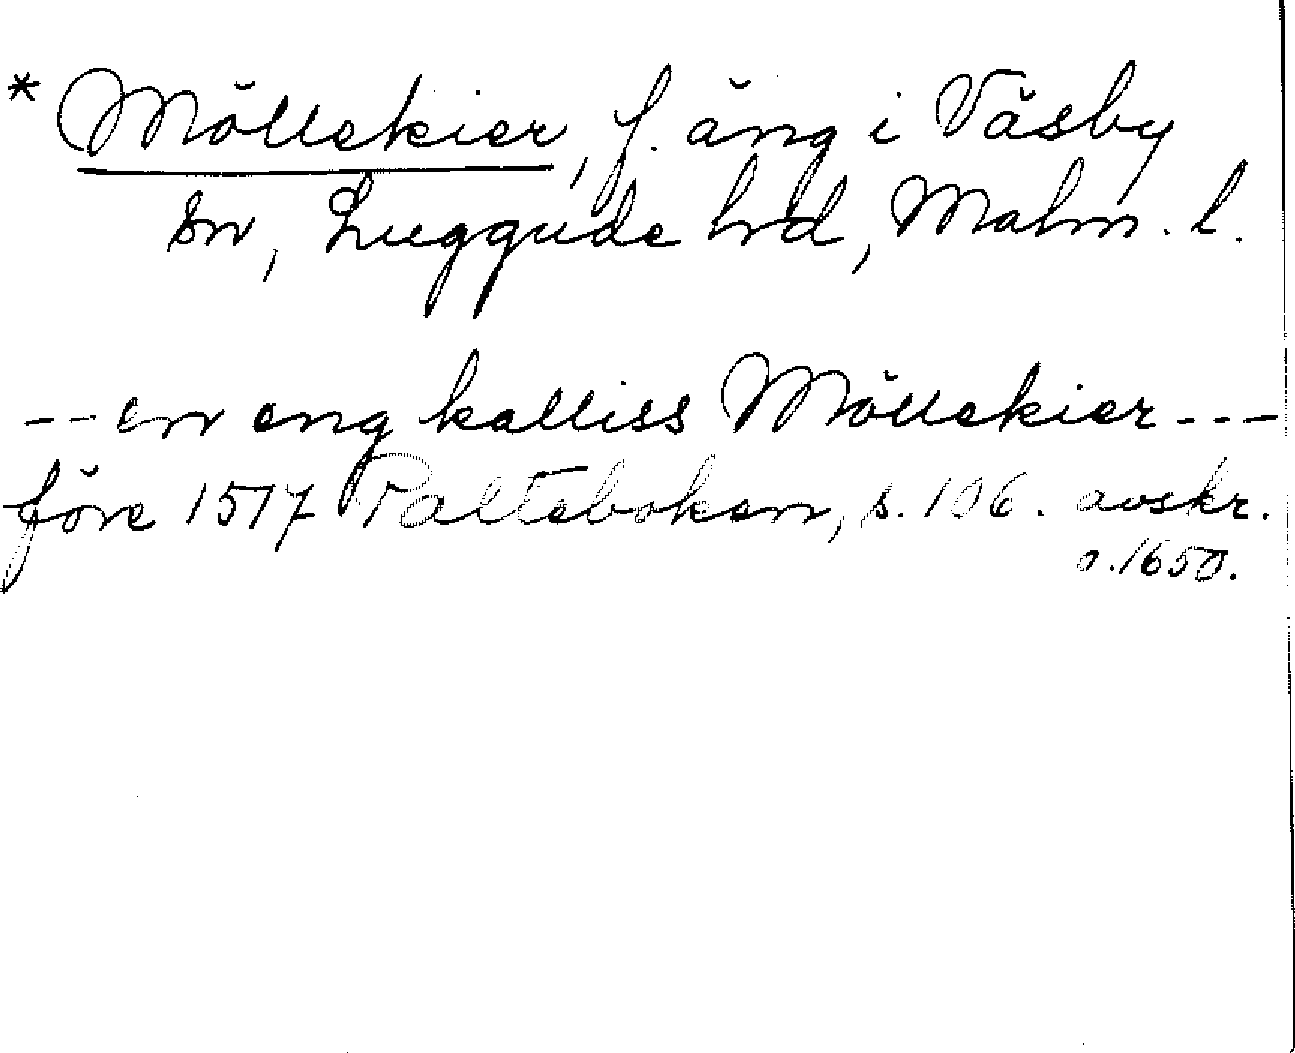 * Möllekier, f. äng i Väsby
sn, Luggude hd, Malm. l.
--- en eng kalliss Möllekier ---
före 1517 Palteboken, s. 106. avskr.
o. 1650.